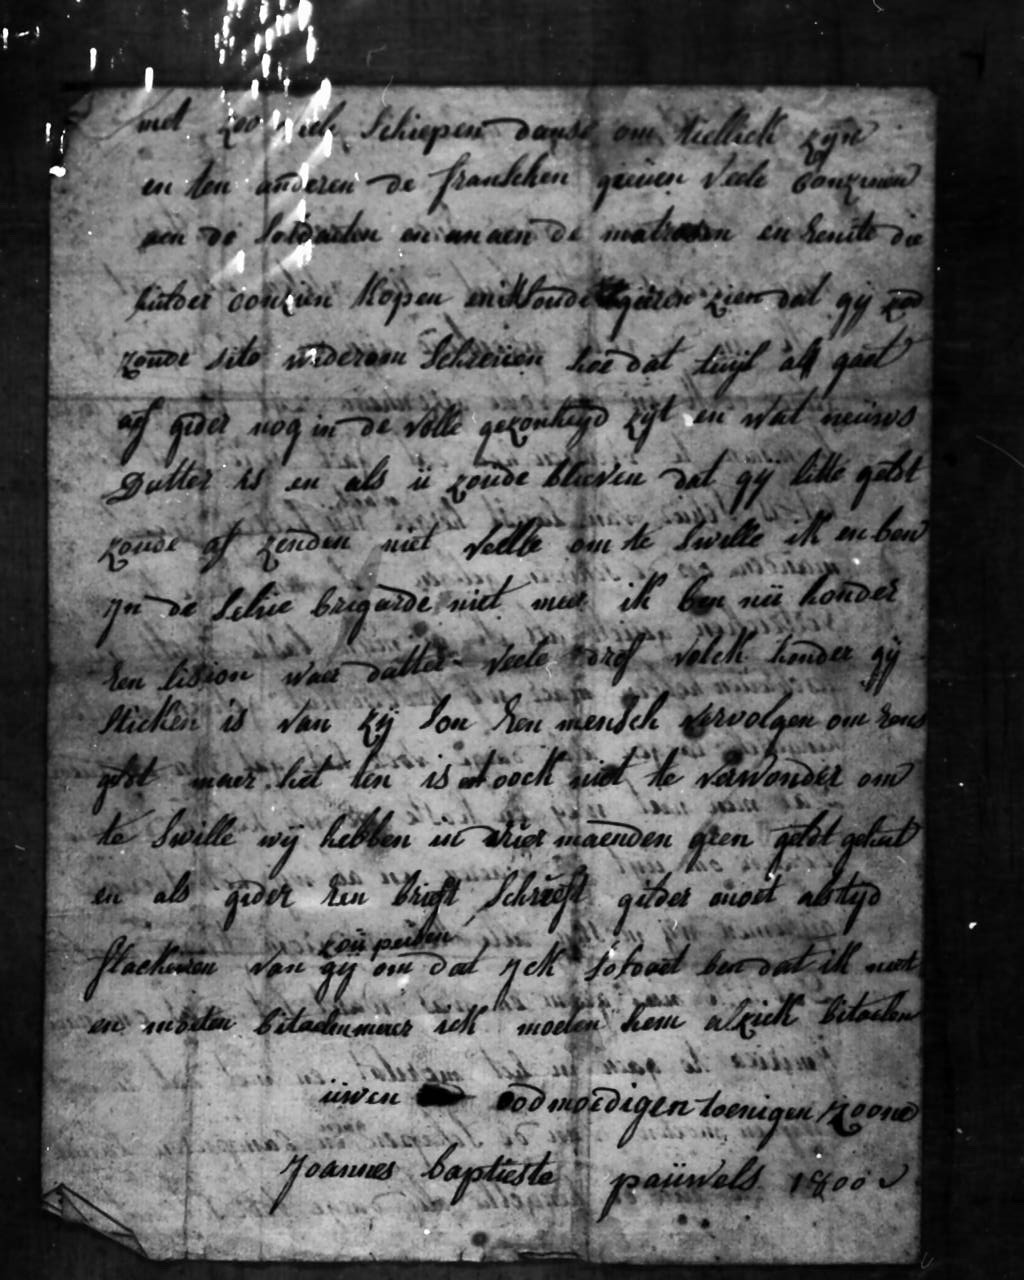 met zoo veele Schepen danse om tiellick zyn
en ten anderen de franschen geeven veele conzenen
aen de Soldaeten en an aen de matrosen en Renite die
hulder conzien Kopen en ik Soude geiren zien dat gij
zoude sito wederom Schreiien hoe dat tuijs all gaet
af gider nog in de volle gezonheyd zijt en wat neiiws
Datter is en als ii zoude blieven dat gij litte geldt
zoude af zenden niet veelle om te Swille ik en ben
Jn de Selve brigarde niet meer ik ben nii honder
Een lision waer datter veele drof volck honder gij
Sticken is van zij Son Een mensch vervolgen om Eens
geldt maer het ten is oock niet te verwonder om
te Swille wij hebben in vier maenden geen geldt gehat
en als gider Een brieft Schreeft gilder moet altyd
van gij om dat Jck Soldaet ben dat ik niet
zoii peiben
en moeten bitaelen maer ick moeten hem bitaelen
iiwen oodmoedigen loenigen Zoone
Joannes baptieste paiiwels 1800